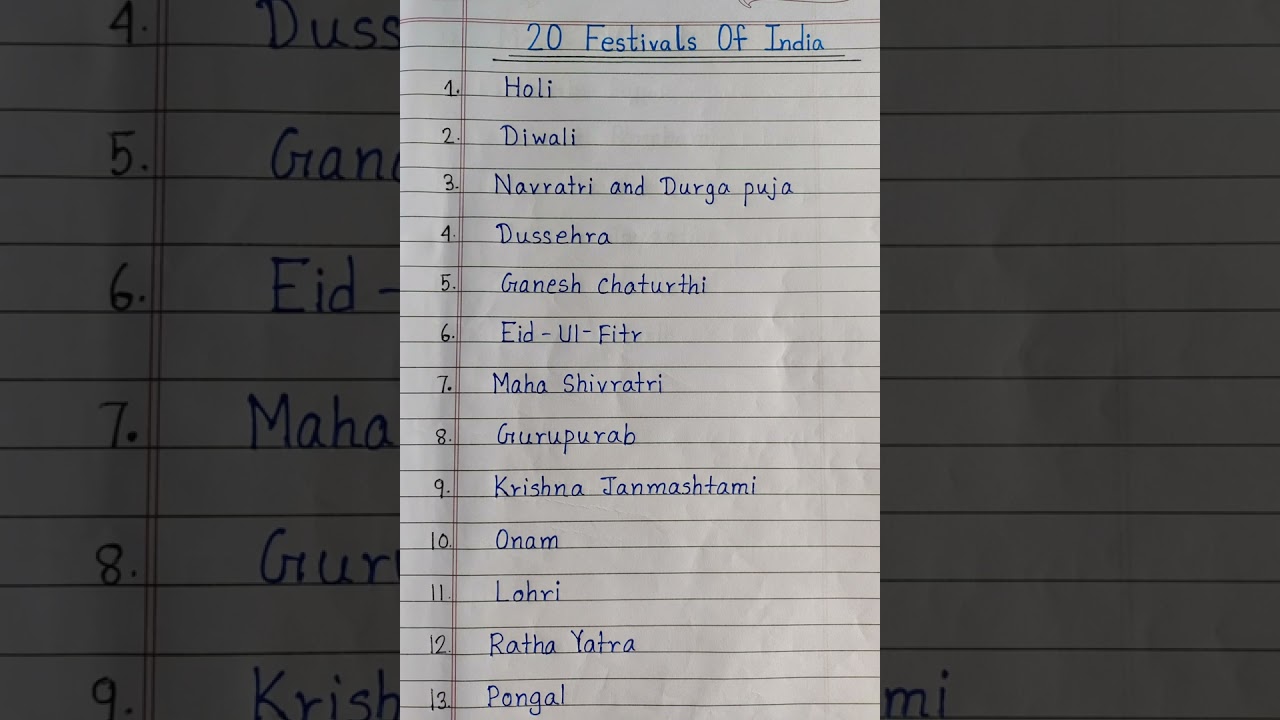 20 Festivals Of India
1. Holi
2. Diwali
3. Navratri and Durga puja
4. Dussehra
5. Ganesh chaturthi
6. Eid-Ul-Fitr
7. Maha Shivratri
8. Gurupurab
9. Krishna Janmashtami
10. Onam
11. Lohri
12. Ratha Yatra
13. Pongal
4. Duss
5. Gan
6. Eid-
7. Maha
8. Gur
9. Krish
mi